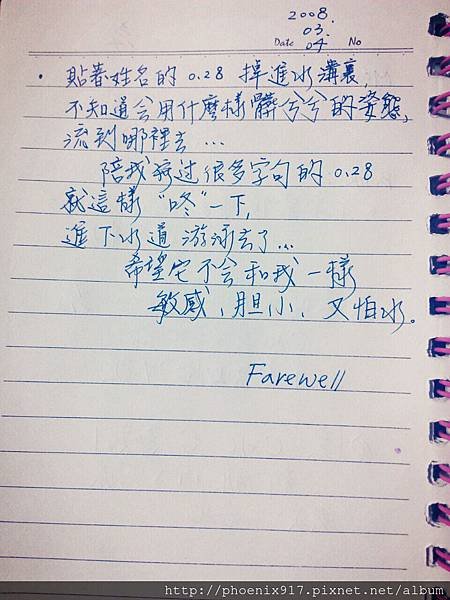 2008.
03.
Date 04 No
· 貼著姓名的 0.28 掉進水溝裏,
不知道会用什麼樣髒兮兮的姿態,
流到哪裡去...
陪我寫过很多字句的 0.28
就這樣"咚"一下,
進下水道游泳去了...
希望它不会和我一樣
敏感、胆小、又怕水。
Farewell
http://phoenix917.pixnet.net/album